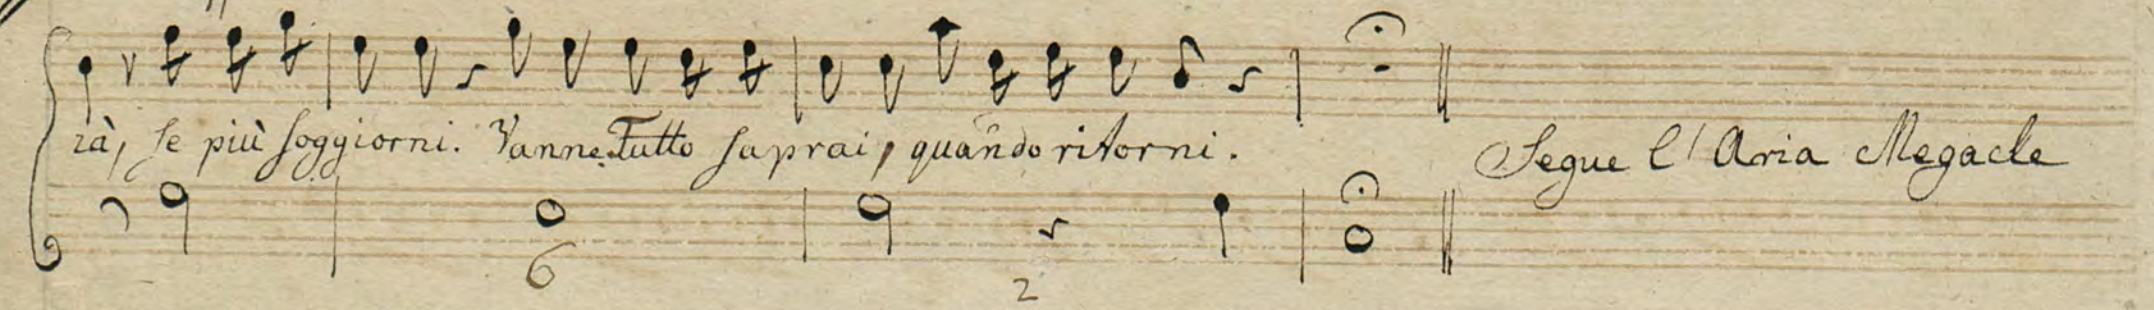 rà, se più soggiorni. Vanne. Tutto saprai, quando ritorni. Segue l'Aria Megacle
6 2